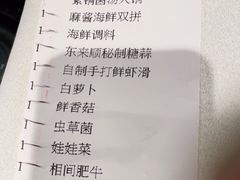 紫铜菌汤火锅
1 麻酱海鲜双拼
1 海鲜调料
1 东来顺秘制糖蒜
1 自制手打鲜虾滑
1 白萝卜
1 鲜香菇
1 虫草菌
1 娃娃菜
1 相间肥牛